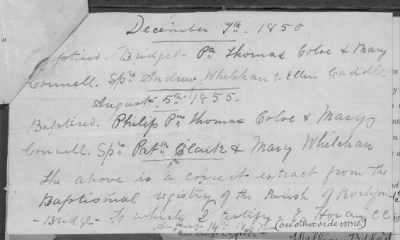 December 7th 1850
Baptised Bridget Pa Thomas Coloe & Mary
Connell. Sps Andrew Whelehan & Ellen Caddle
August 5th 1855.
Baptised Philip Pn Thomas Coloe & Mary
Connell. Sps Patk Clark & Mary Whelehan
The above is a correct extract from the
Baptismal registry of the Parish of Rochford
-Bridge- To which I certify E Horan CC
(see other side more)